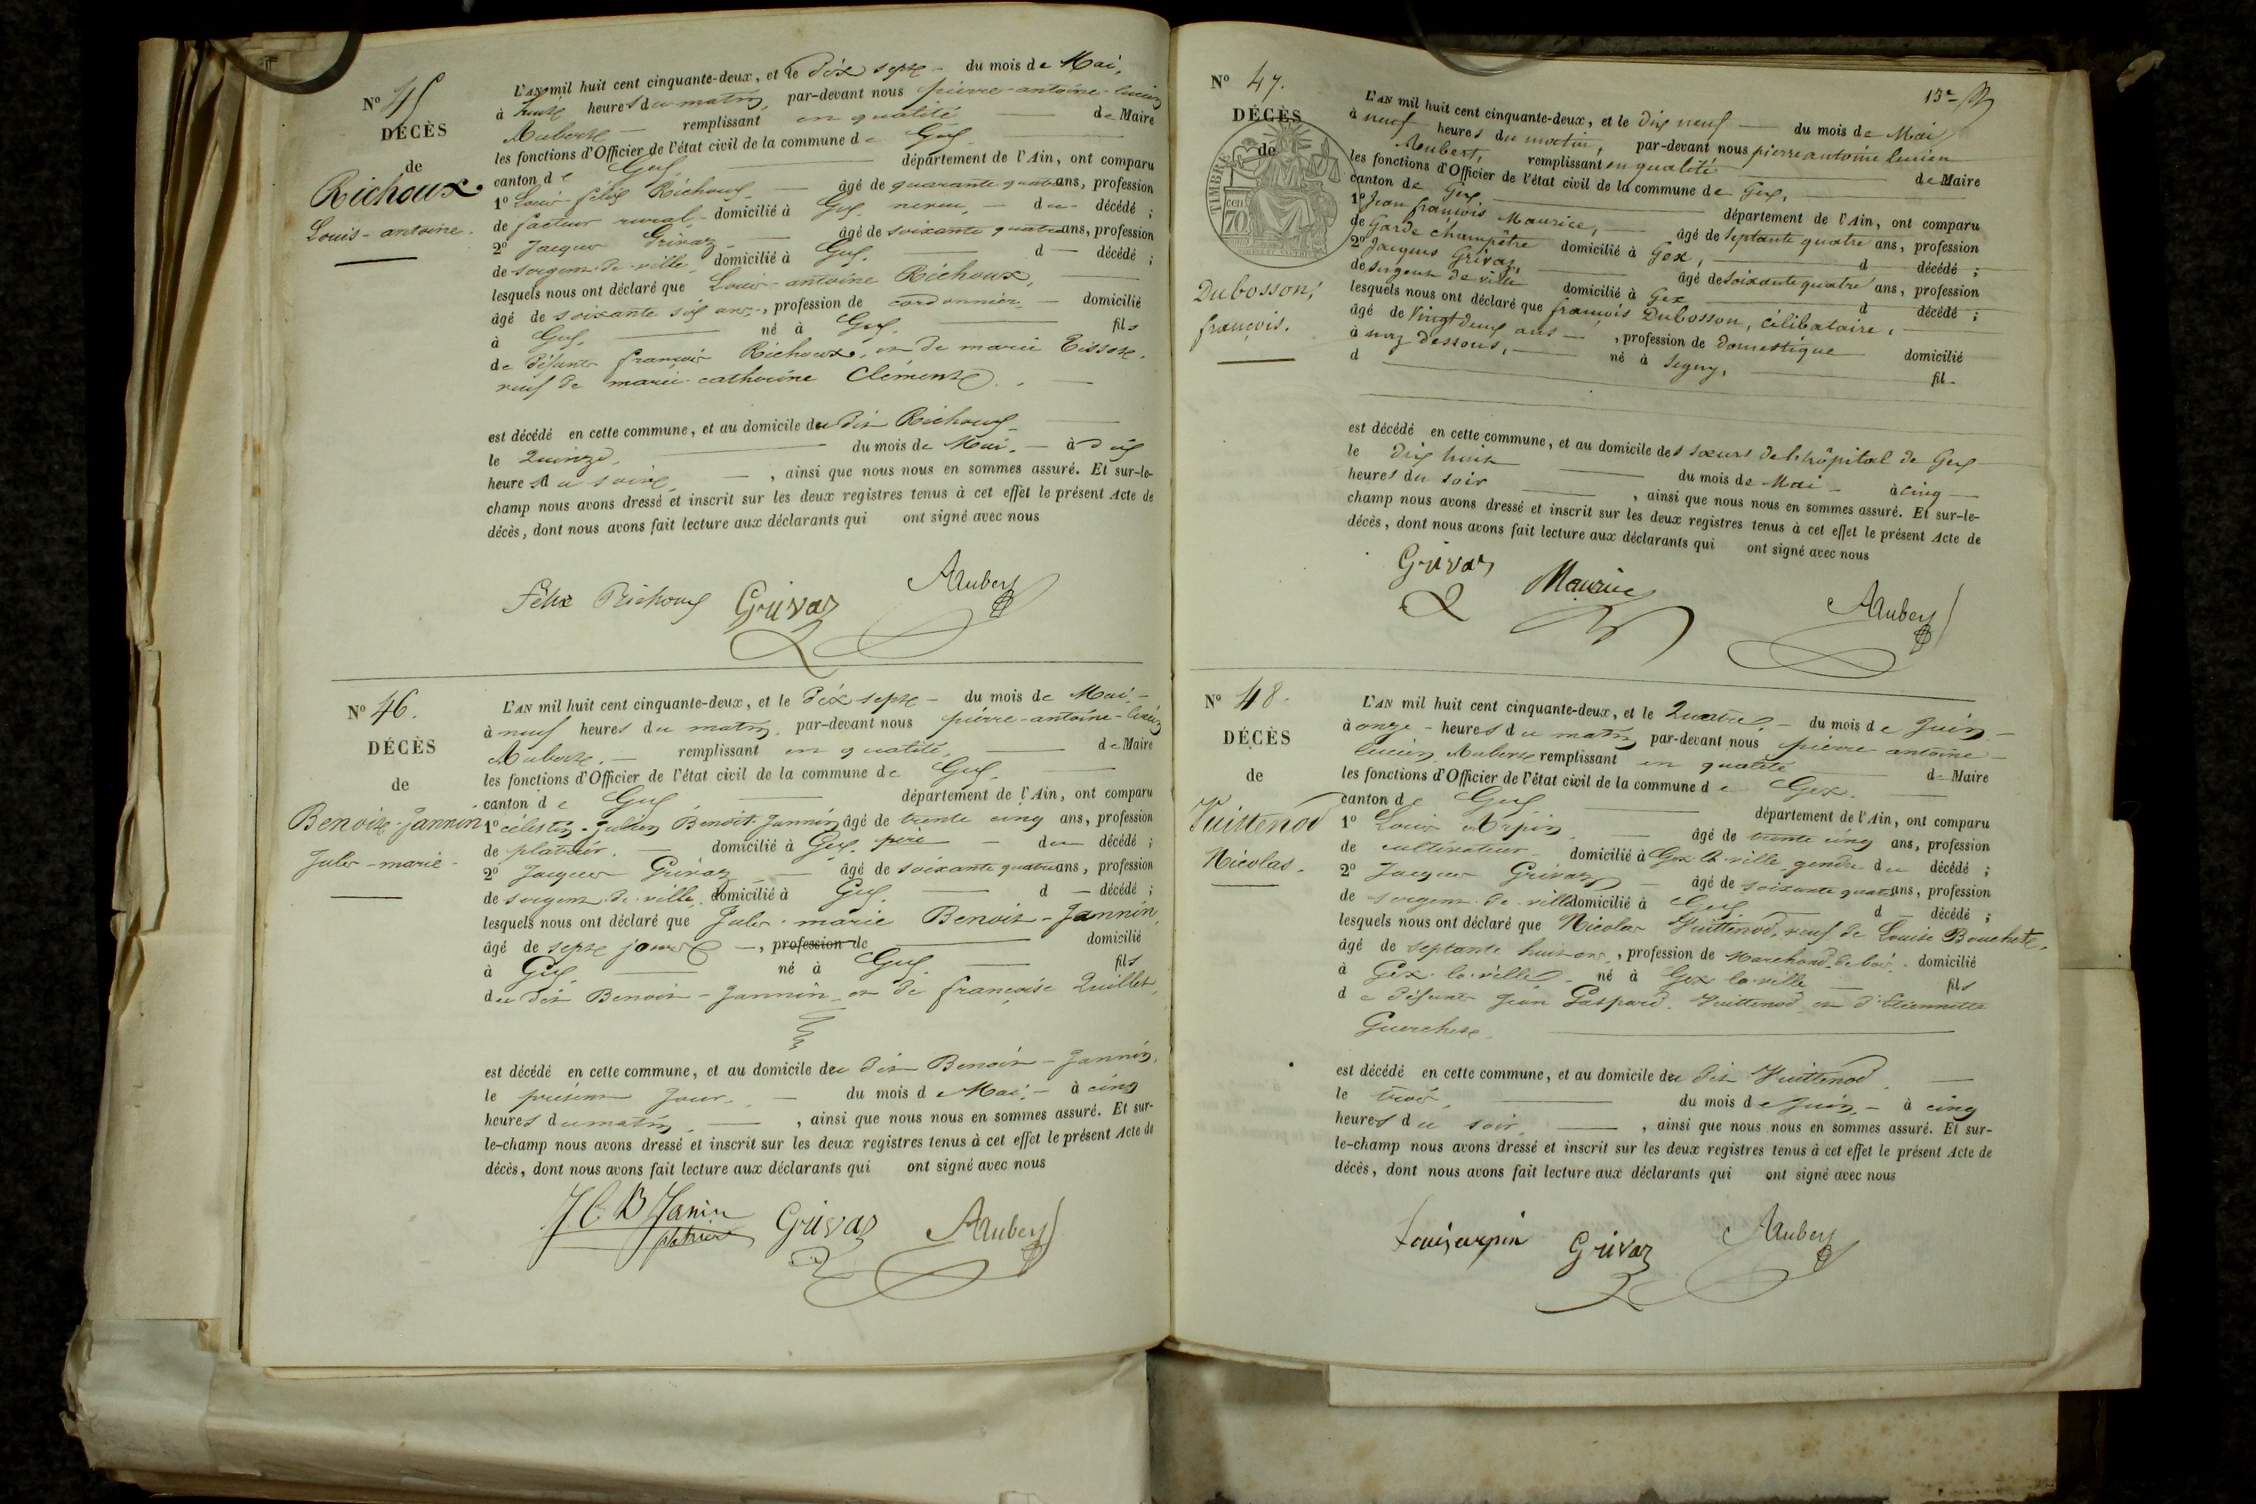 N° 45
DÉCÈS
de
Richoux
Louis-antoine.
L'AN mil huit cent cinquante-deux, et le dix sept du mois de Mai,
à heures du matin, par-devant nous pierre-antoine-lucien
Aubert remplissant en qualité de Maire
les fonctions d'Officier de l'état civil de la commune de Gex
canton de Gex département de l'Ain, ont comparu
1° Louis félix Richoux âgé de quarante quatre ans, profession
de facteur rural domicilié à Gex neveu du décédé ;
2° Jacques Grivaz âgé de soixante quatre ans, profession
de sergent de ville domicilié à Gex d décédé ;
lesquels nous ont déclaré que Louis-antoine Richoux,
âgé de soixante six ans, profession de cordonnier domicilié
à Gex né à Gex fils
de défunts françois Richoux, et de marie Tissot,
veuf de marie catherine Clément
est décédé en cette commune, et au domicile du dit Richoux
le Quinze du mois de Mai à dix
heures du soir, ainsi que nous nous en sommes assuré. Et sur-le-
champ nous avons dressé et inscrit sur les deux registres tenus à cet effet le présent Acte de
décès, dont nous avons fait lecture aux déclarants qui ont signé avec nous
Félix Richoux Grivaz AAubert
N° 46.
DÉCÈS
de
Benoit-Jannin
Jules-marie
L'AN mil huit cent cinquante-deux, et le dix sept du mois de Mai
à neuf heures du matin, par-devant nous pierre-antoine-lucien
Aubert remplissant en qualité de Maire
les fonctions d'Officier de l'état civil de la commune de Gex
canton de Gex département de l'Ain, ont comparu
1° célestin-Julien Benoit-Jannin âgé de trente cinq ans, profession
de platrier domicilié à Gex, père du décédé ;
2° Jacques Grivaz âgé de soixante quatre ans, profession
de sergent de ville domicilié à Gex d décédé ;
lesquels nous ont déclaré que Jules-marie Benoit-Jannin,
âgé de sept jours, profession de domicilié
à Gex né à Gex fils
du dit Benoit-Jannin et de françoise Quillet,
est décédé en cette commune, et au domicile du dit Benoit-Jannin,
le présent jour du mois de Mai à cinq
heures du matin, ainsi que nous nous en sommes assuré. Et sur-
le-champ nous avons dressé et inscrit sur les deux registres tenus à cet effet le présent Acte de
décès, dont nous avons fait lecture aux déclarants qui ont signé avec nous
J C B Janin platrier Grivaz AAubert
13e
N° 47.
DÉCÈS
de
TIMBRE
cen
70
Dubosson,
françois.
L'AN mil huit cent cinquante-deux, et le dix neuf du mois de Mai
à neuf heures du matin, par-devant nous pierre antoine lucien
Aubert, remplissant en qualité de Maire
les fonctions d'Officier de l'état civil de la commune de Gex,
canton de Gex département de l'Ain, ont comparu
1° Jean françois Maurice, âgé de septante quatre ans, profession
de Garde champêtre domicilié à Gex, d décédé ;
2° Jacques Grivaz, âgé de soixante quatre ans, profession
de sergent de ville domicilié à Gex d décédé ;
lesquels nous ont déclaré que françois Dubosson, célibataire,
âgé de vingt deux ans, profession de domestique domicilié
à dessous, né à Segny,
d fil
est décédé en cette commune, et au domicile des sœurs de l'hôpital de Gex
le dix huit du mois de Mai à cinq
heures du soir, ainsi que nous nous en sommes assuré. Et sur-le-
champ nous avons dressé et inscrit sur les deux registres tenus à cet effet le présent Acte de
décès, dont nous avons fait lecture aux déclarants qui ont signé avec nous
Grivaz Maurice AAubert
N° 48.
DÉCÈS
de
Vuittenod
Nicolas.
L'AN mil huit cent cinquante-deux, et le Quatre du mois de Juin
à onze heures du matin par-devant nous pierre antoine
lucien Aubert remplissant en qualité de Maire
les fonctions d'Officier de l'état civil de la commune de Gex.
canton de Gex département de l'Ain, ont comparu
1° Louis Arpin âgé de trente cinq ans, profession
de cultivateur domicilié à Gex la ville gendre du décédé ;
2° Jacques Grivaz âgé de soixante quatre ans, profession
de sergent de ville domicilié à Gex d décédé ;
lesquels nous ont déclaré que Nicolas Vuittenod, veuf de Louise Bouchet,
âgé de septante huit ans, profession de Marchand de bois domicilié
à Gex-la-ville né à Gex la ville fils
de défunts Jean Gaspard Vuittenod et d'Etiennette
Guerchet
est décédé en cette commune, et au domicile du dit Vuittenod
le trois du mois de Juin à cinq
heures du soir, ainsi que nous nous en sommes assuré. Et sur-
le-champ nous avons dressé et inscrit sur les deux registres tenus à cet effet le présent Acte de
décès, dont nous avons fait lecture aux déclarants qui ont signé avec nous
Louis arpin Grivaz AAubert